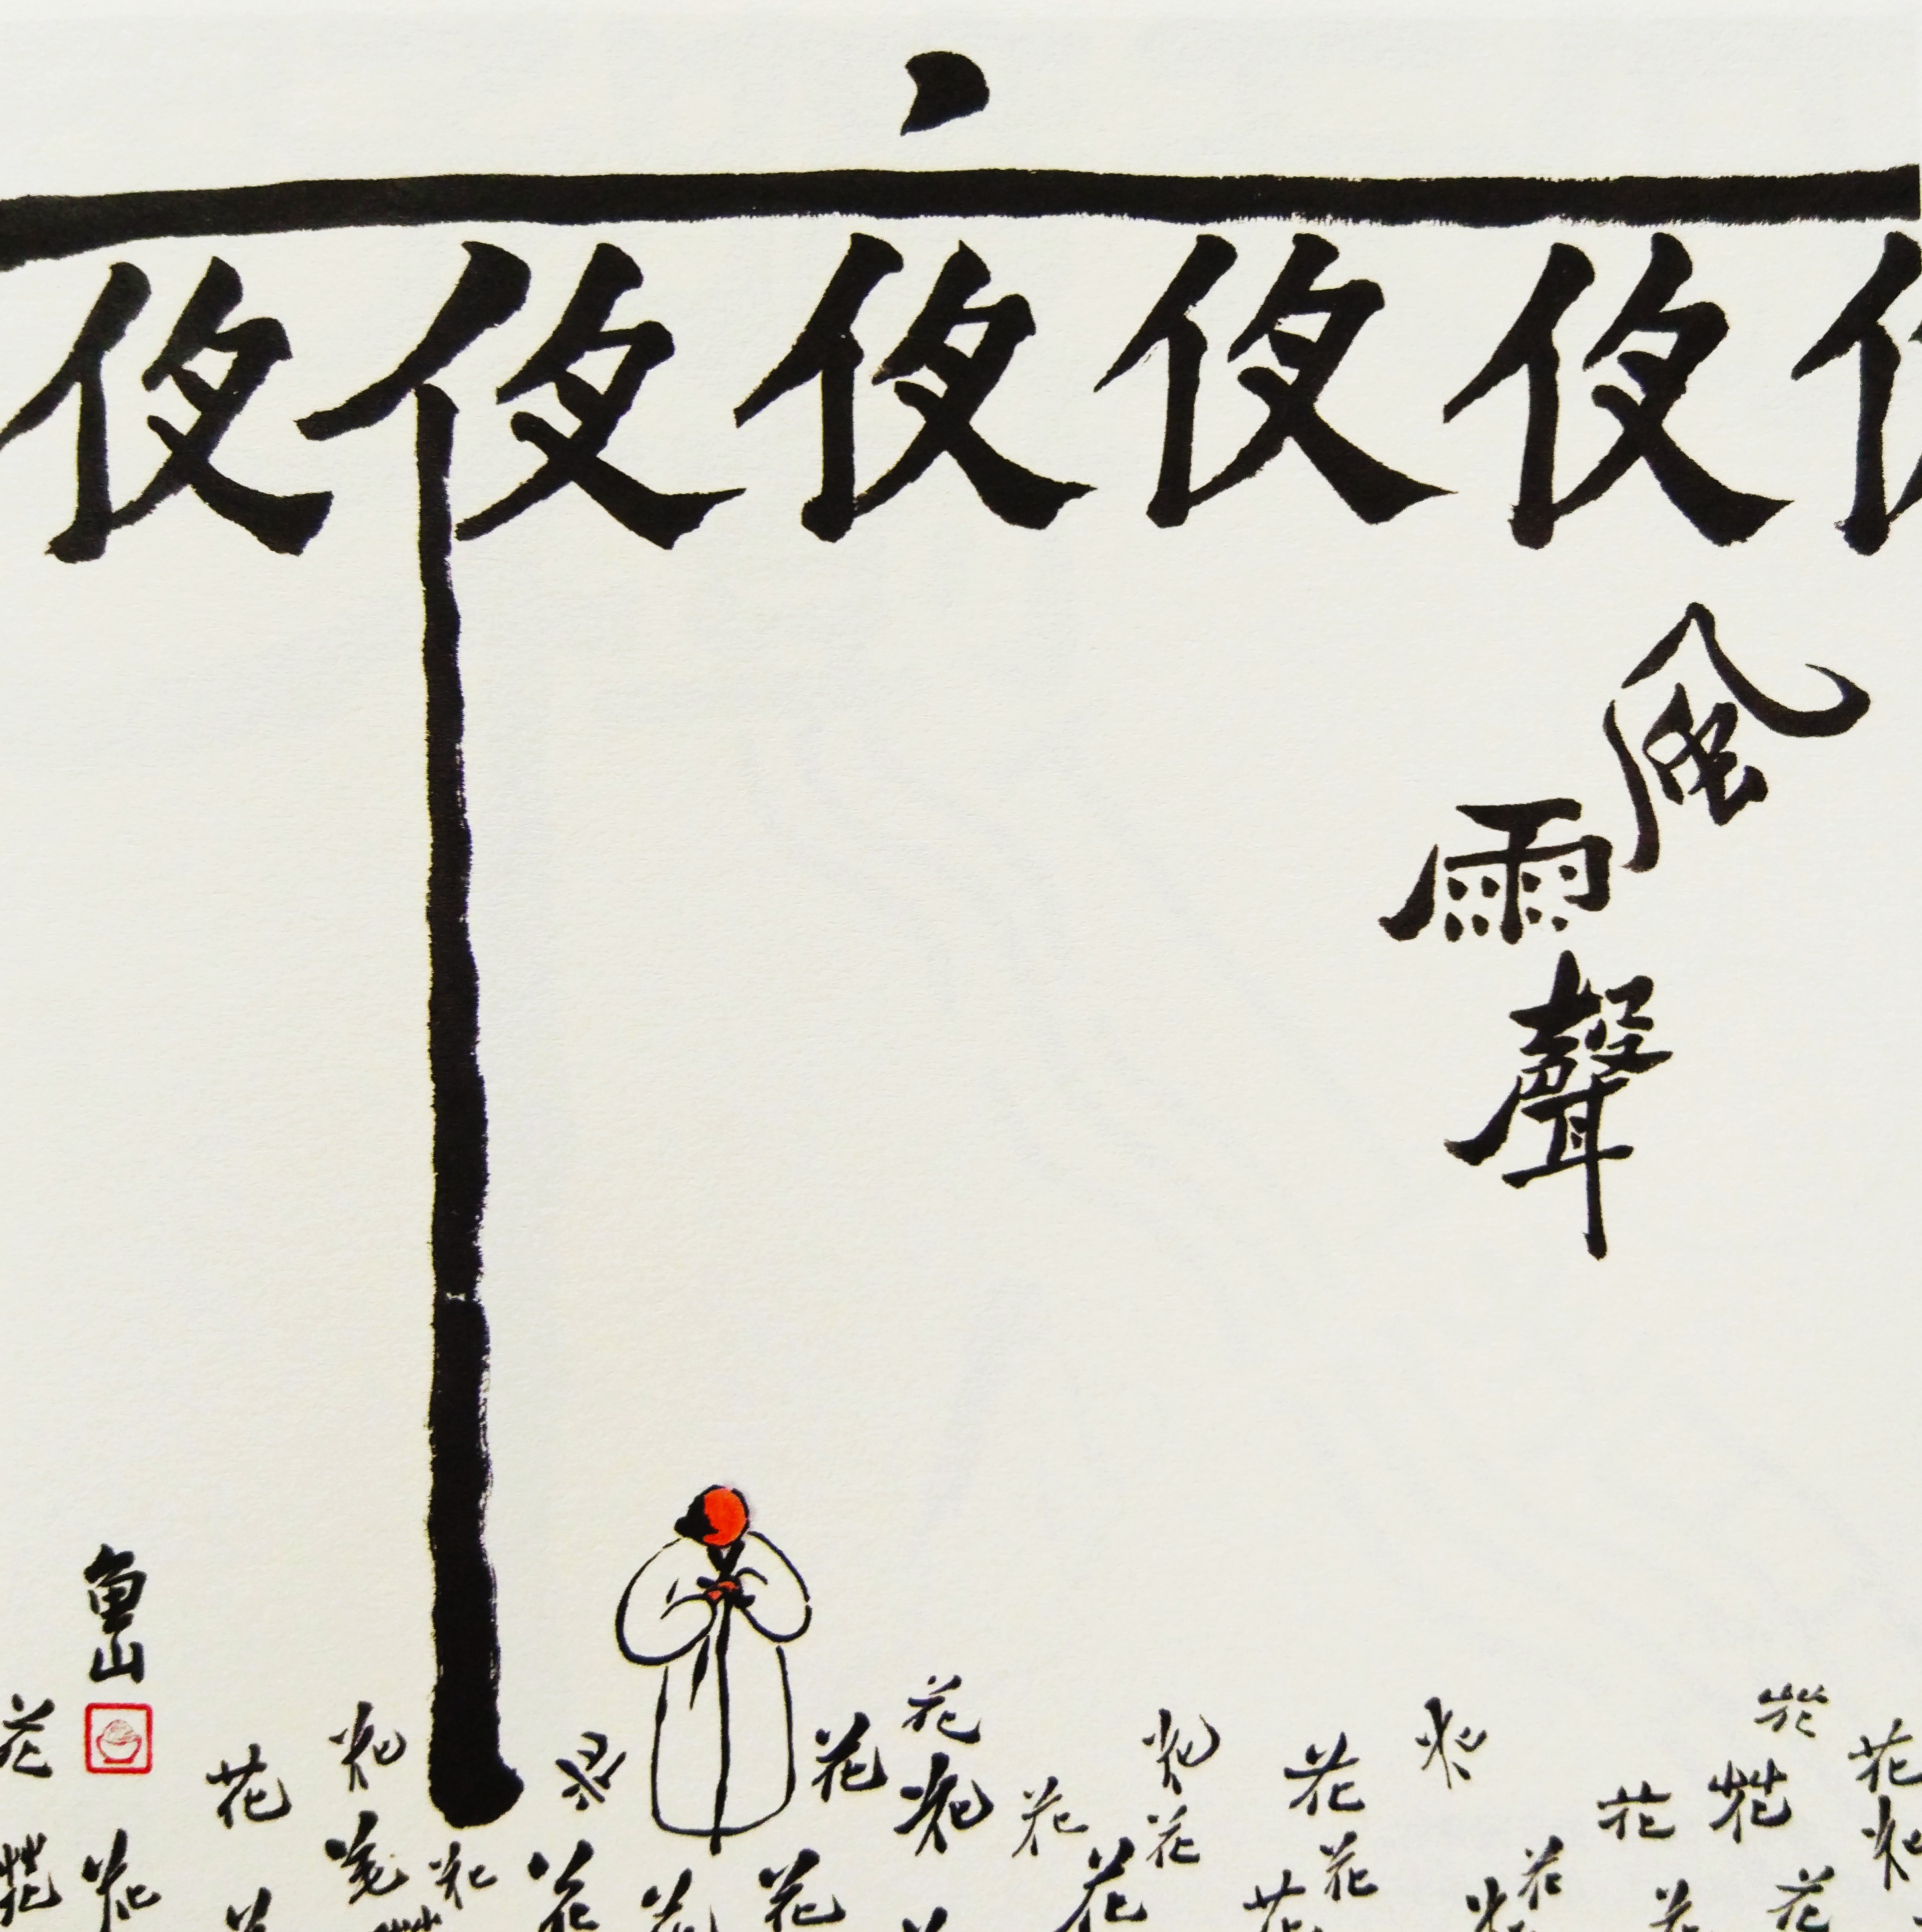 夜夜夜夜夜
風
雨
聲
魚山
花花
花花花花花花花
花花花花花花花花
花花花花花花花花花花花花花花